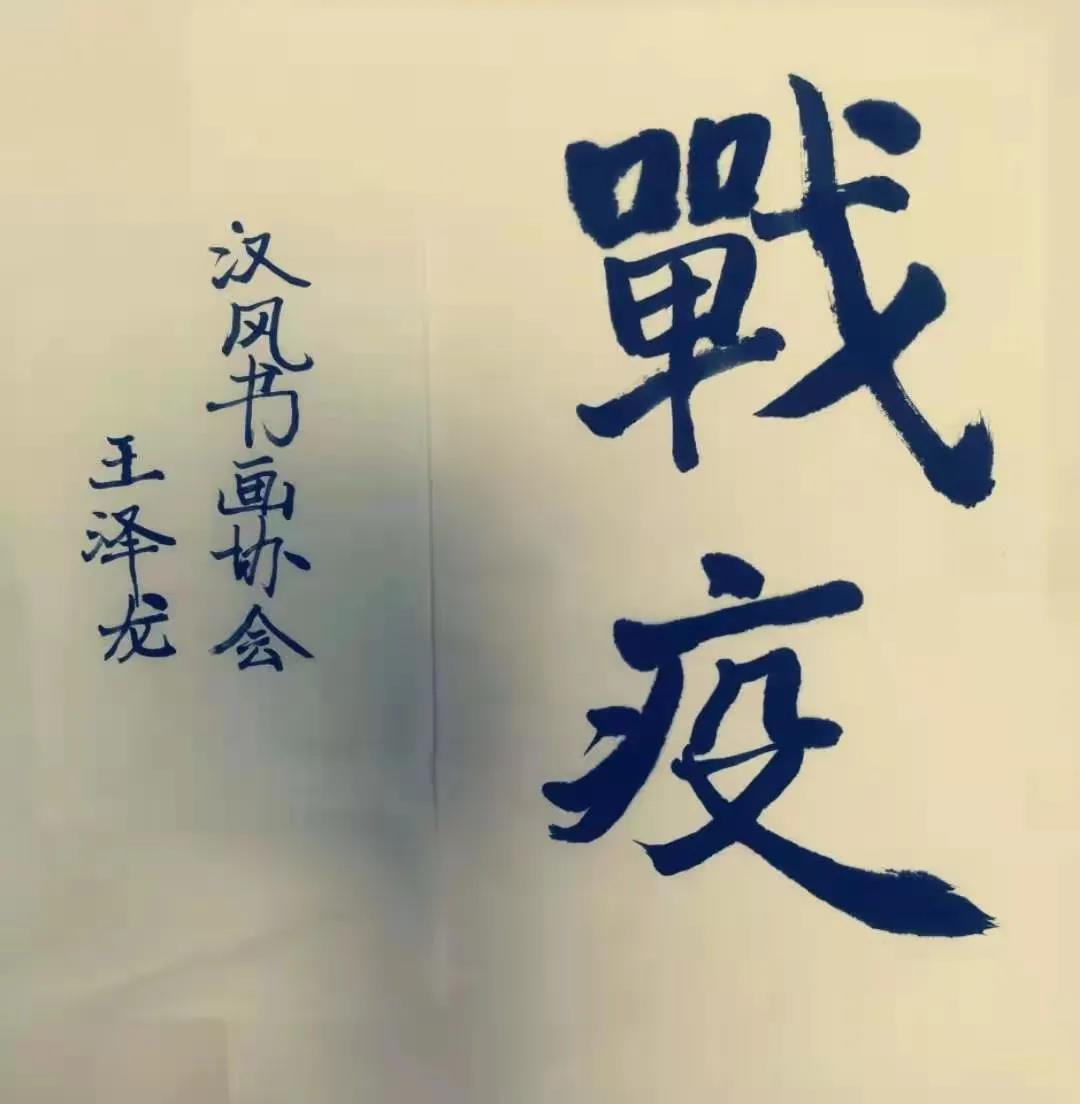 戰疫
汉风书画协会
王泽龙